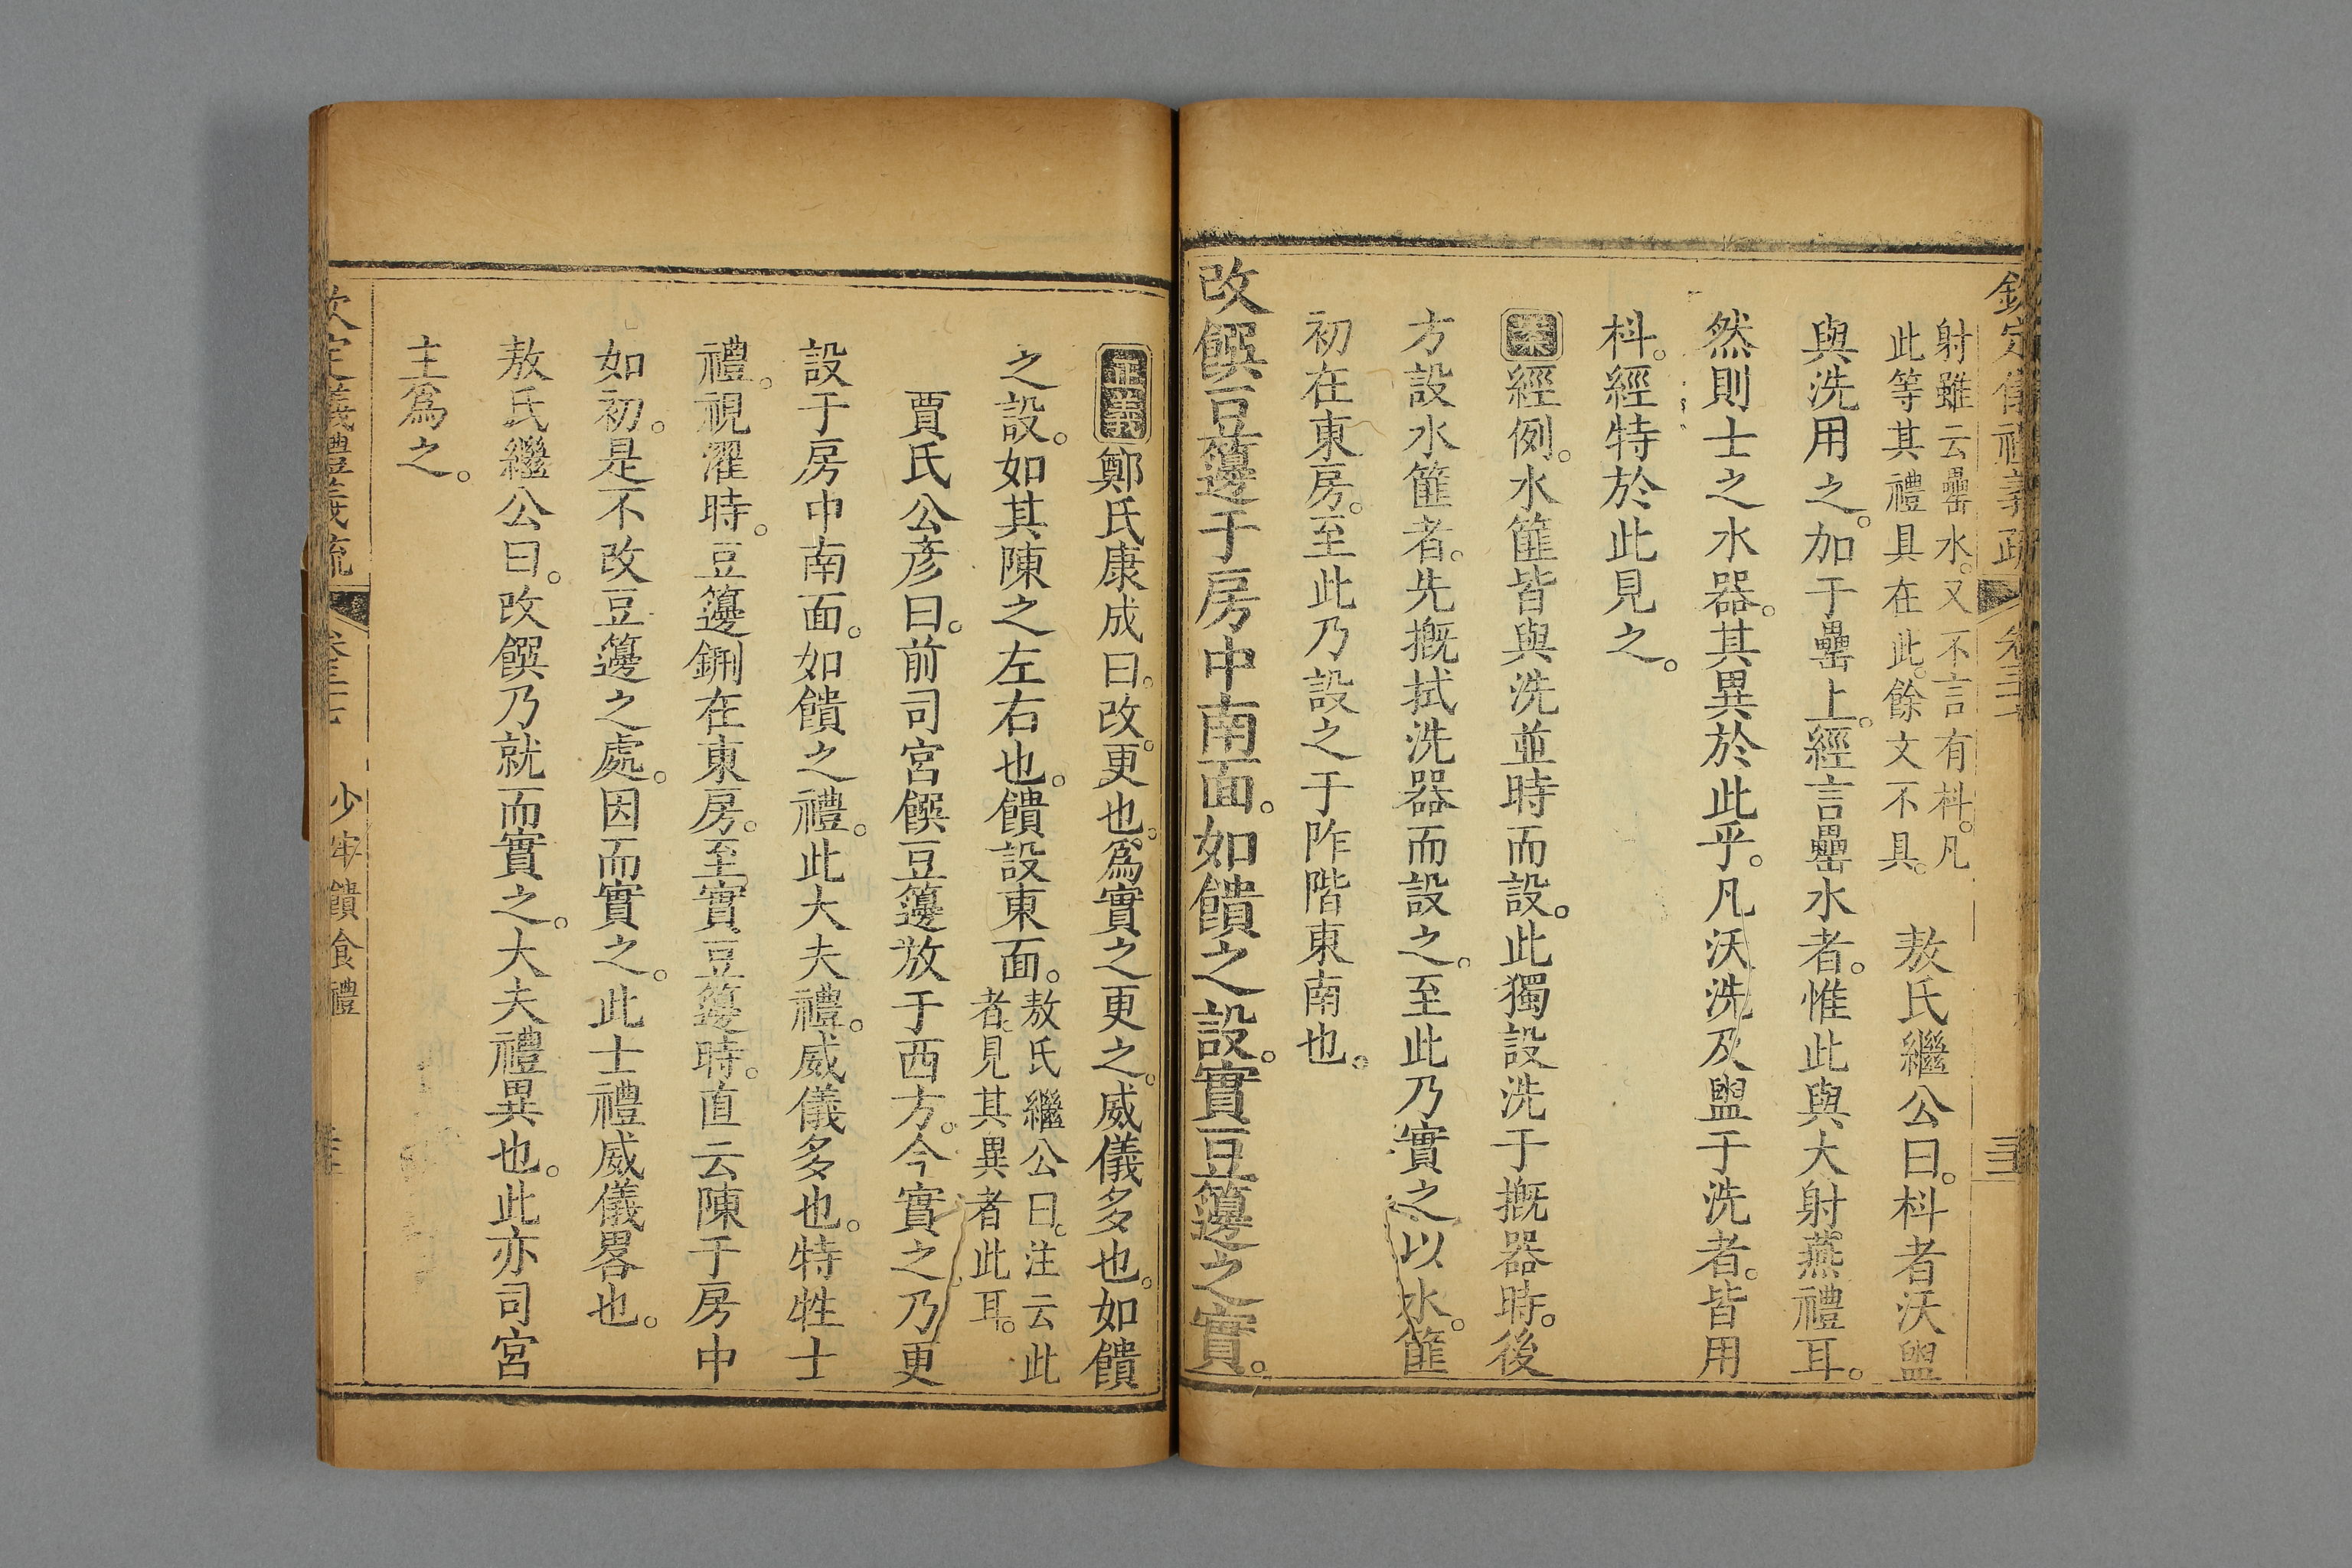 射雖云罍水。又不言有枓。凡
此等其禮具在此。餘文不具。
敖氏繼公曰。枓者沃盥
與洗用之。加于罍上。經言罍水者。惟此與大射燕禮耳。
然則士之水器。其異於此乎。凡沃洗及盥于洗者。皆用
枓。經特於此見之。
案經例。水篚皆與洗並時而設。此獨設洗于摡器時。後
方設水篚者。先摡拭洗器而設之。至此乃實之以水。篚
初在東房。至此乃設之于阼階東南也。
改饌豆籩于房中南面。如饋之設。實豆籩之實。
正義鄭氏康成曰。改。更也。爲實之更之。威儀多也。如饋
之設。如其陳之左右也。饋設東面。
敖氏繼公曰。注云此
者。見其異者此耳。
賈氏公彥曰。前司宮饌豆籩放于西方。今實之。乃更
設于房中南面。如饋之禮。此大夫禮。威儀多也。特牲士
禮。視濯時。豆籩鉶在東房。至實豆籩時。直云陳于房中
如初。是不改豆籩之處。因而實之。此士禮威儀畧也。
敖氏繼公曰。改饌乃就而實之。大夫禮異也。此亦司宮
主爲之。
少牢饋食禮